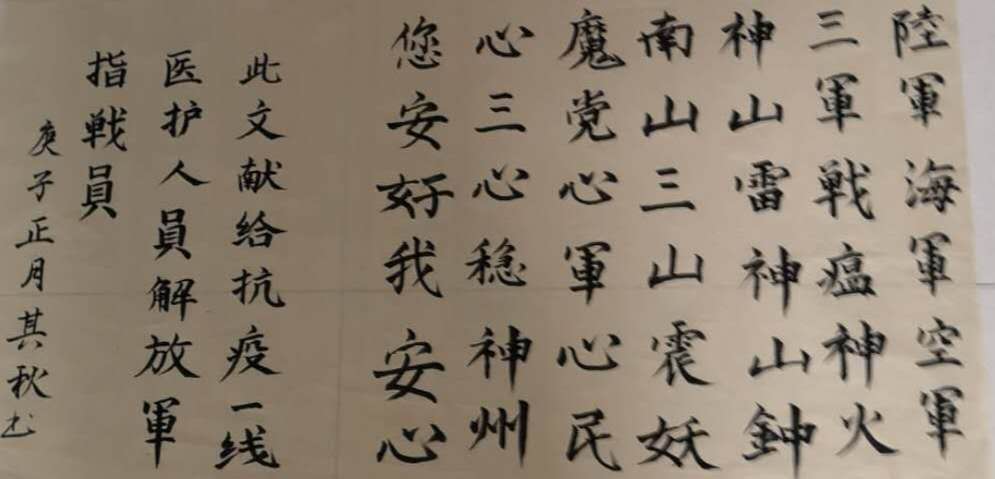 陸軍海軍空軍
三軍戦瘟神火
神山雷神山鈡
南山三山震妖
魔党心軍心民
心三心稳神州
您安好我安心
此文献给抗疫一线
医护人員解放軍
指戦員
庚子正月其秋书